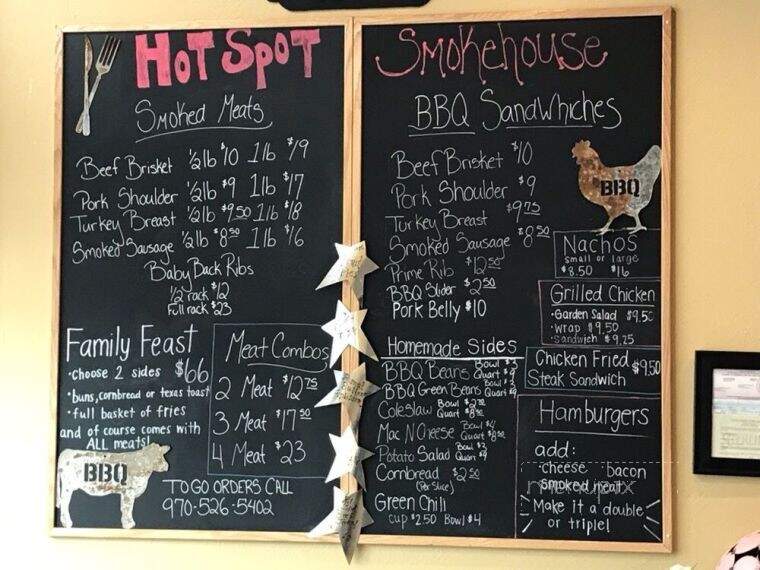 HOT SPOT
Smoked Meats
Beef Brisket ½lb $10 1lb $19
Pork Shoulder ½lb $9 1lb $17
Turkey Breast ½lb $9.50 1lb $18
Smoked Sausage ½lb $8.50 1lb $16
Baby Back Ribs
½ rack $12
Full rack $23
Family Feast
•choose 2 sides $66
•buns, cornbread or texas toast
•full basket of fries
and of course comes with
ALL meats!
BBQ
Meat Combos
2 Meat $12.75
3 Meat $17.50
4 Meat $23
TO GO ORDERS CALL
970-526-5402
Smokehouse
BBQ Sandwhiches
Beef Brisket $10
Pork Shoulder $9
Turkey Breast $9.75
Smoked Sausage $8.50
Prime Rib $12.50
BBQ Slider $2.50
Pork Belly $10
BBQ
Nachos
small or large
$8.50 $16
Grilled Chicken
•Garden Salad $9.50
•wrap $9.50
•Sandwich $9.25
Chicken Fried $9.50
Steak Sandwich
Homemade Sides
BBQ Beans Bowl $3
Quart $9
BBQ Green Beans Bowl
Quart $9
Coleslaw Bowl
Quart
Mac N Cheese Bowl $4
Quart
Potato Salad Bowl $3
Quart $9
Cornbread $2.50
(Per Slice)
Green Chili
cup $2.50 Bowl $4
Hamburgers
add:
•cheese bacon
smoked meat
Make it a double
or triple!